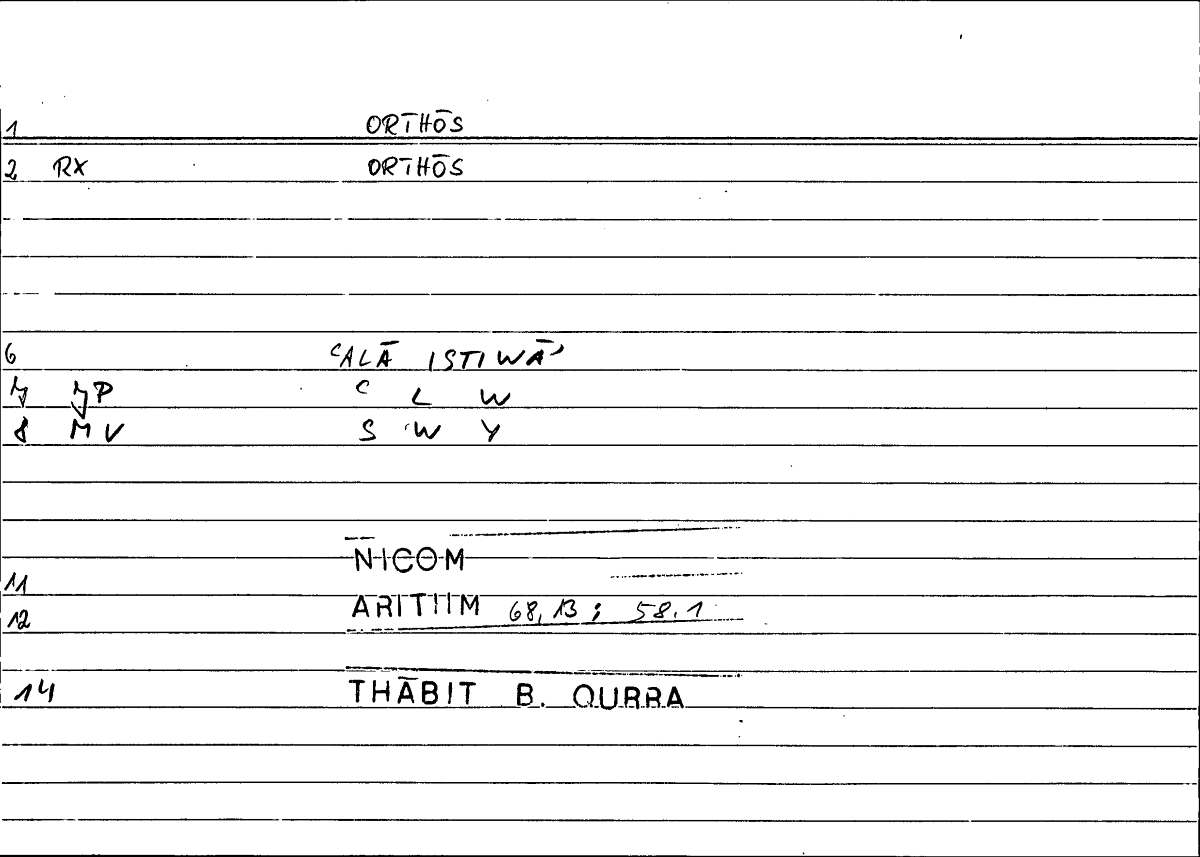 1 ORTHŌS
2 RX ORTHŌS
6 ʿALĀ ISTIWĀʾ
7 JP ʿ L W
8 MV S W Y
NICOM
11
12 ARITHM 68,13; 58.1
14 THĀBIT B. QURRA